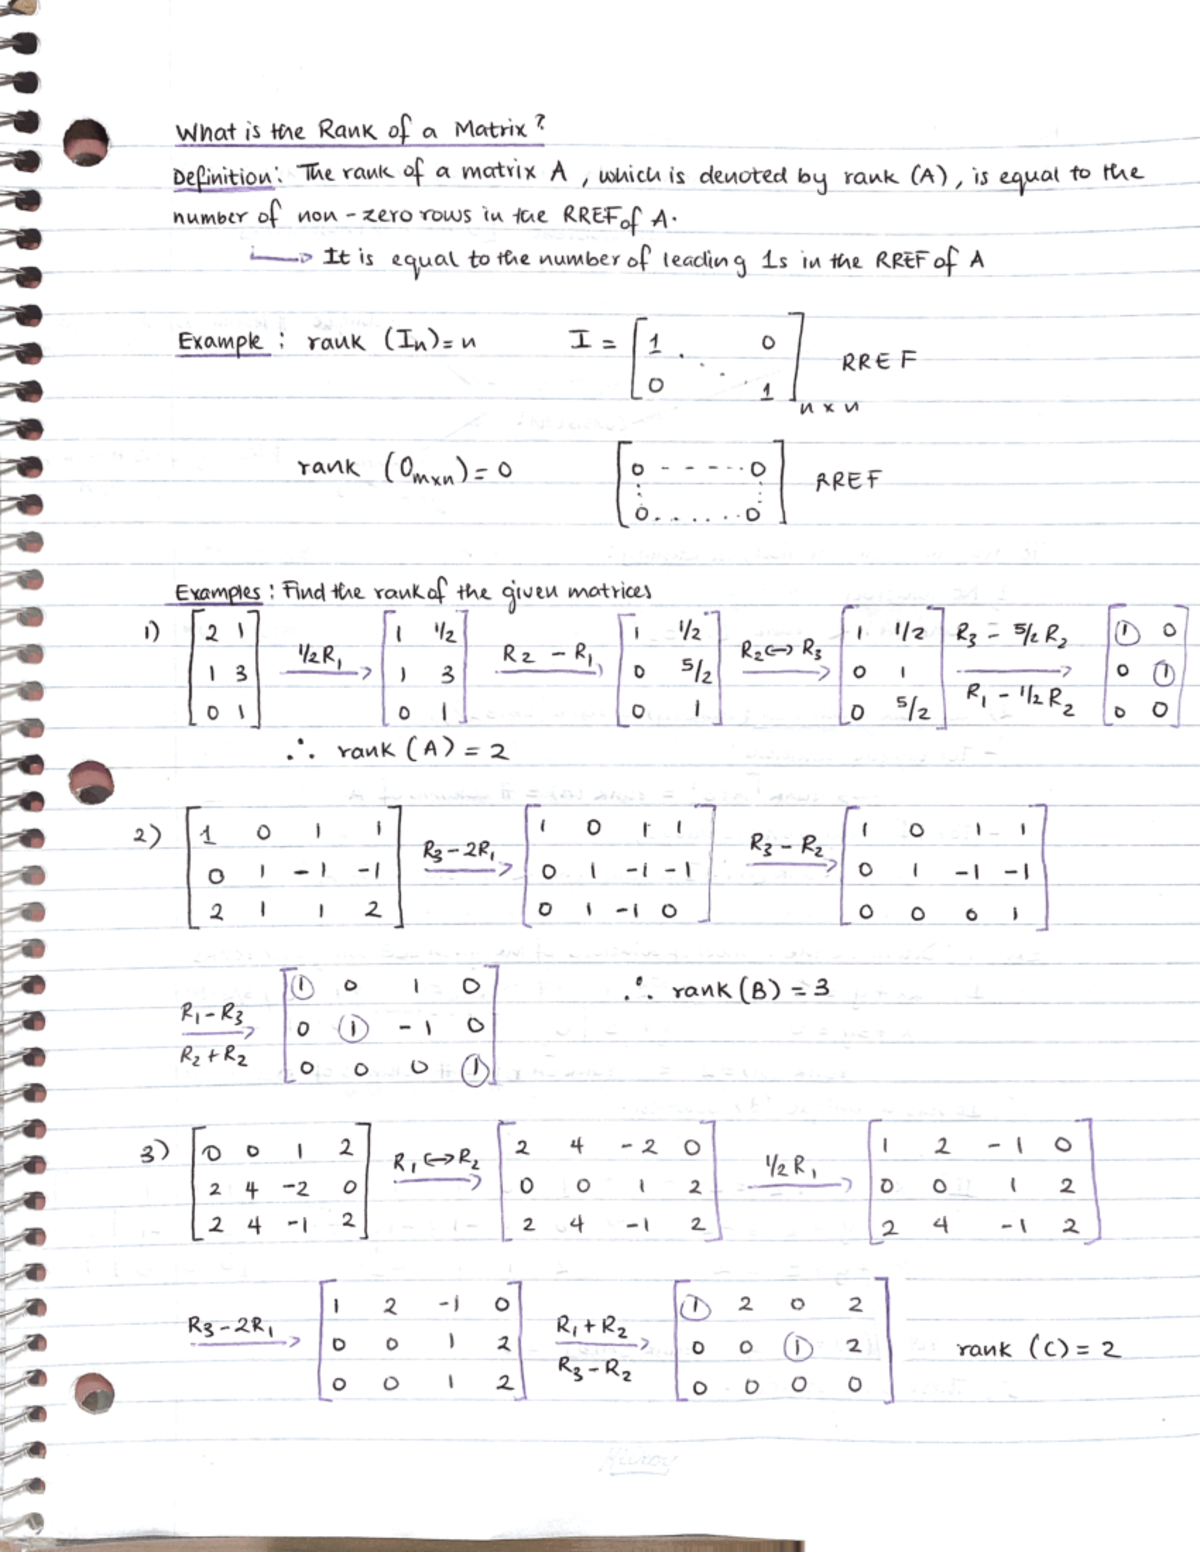 What is the Rank of a Matrix?
Definition: The rank of a matrix A, which is denoted by rank (A), is equal to the
number of non-zero rows in the RREF of A.
↳ It is equal to the number of leading 1s in the RREF of A
Example: rank (Iₙ) = n I = [1 ⋱ 0; 0 1] n×n RREF
rank (0ₘₓₙ) = 0 [0 ----·· 0; ⋮ ⋮; 0 ...... 0] RREF
Examples: Find the rank of the given matrices
1) [2 1; 1 3; 0 1] 1/2R₁ → [1 1/2; 1 3; 0 1] R₂ - R₁ → [1 1/2; 0 5/2; 0 1] R₂ ↔ R₃ → [1 1/2; 0 1; 0 5/2] R₃ - 5/2 R₂, R₁ - 1/2 R₂ → [1 0; 0 1; 0 0]
∴ rank (A) = 2
2) [1 0 1 1; 0 1 -1 -1; 2 1 1 2] R₃ - 2R₁ → [1 0 1 1; 0 1 -1 -1; 0 1 -1 0] R₃ - R₂ → [1 0 1 1; 0 1 -1 -1; 0 0 0 1]
R₁ - R₃, R₂ + R₂ → [1 0 1 0; 0 1 -1 0; 0 0 0 1] ∴ rank (B) = 3
3) [0 0 1 2; 2 4 -2 0; 2 4 -1 2] R₁ ↔ R₂ → [2 4 -2 0; 0 0 1 2; 2 4 -1 2] 1/2 R₁ → [1 2 -1 0; 0 0 1 2; 2 4 -1 2]
R₃ - 2R₁ → [1 2 -1 0; 0 0 1 2; 0 0 1 2] R₁ + R₂, R₃ - R₂ → [1 2 0 2; 0 0 1 2; 0 0 0 0] rank (C) = 2